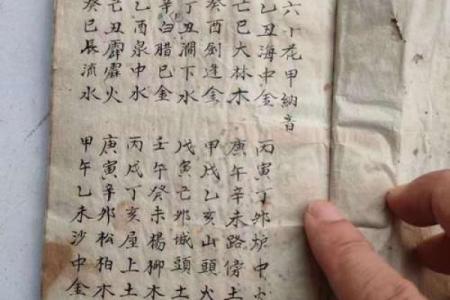 六十花甲納音
乙丑海中金
巳大林木
癸酉劍逢金
丁丑澗下水
辛白腊巳金
乙酉泉中水
己丑霹靂火
癸巳長流水
丙寅丁卯炉中火
庚午辛未路傍土
甲戌乙亥山頭火
戊寅己卯城頭土
壬午癸未楊柳木
丙戌丁亥屋上土
庚寅辛卯松柏木
甲午乙未沙中金